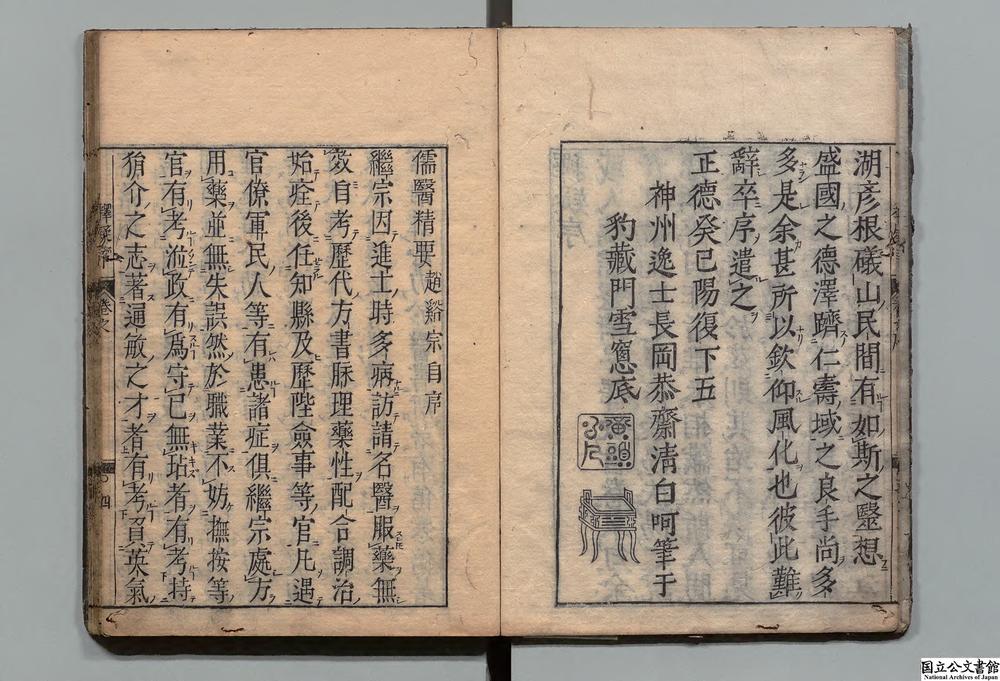 湖彦根礒山民間有如斯之毉想
盛國之德澤躋仁壽域之良手尚多
多是余甚所以欽仰風化也彼此難
辭卒序遣之
正德癸巳陽復下五
神州逸士長岡恭齋清白呵筆于
豹藏門雪窻底
儒醫精要趙繼宗自序
繼宗因進士時多病訪請名醫服藥無
效自考歷代方書脉理藥性配合調治
始痊後任知縣及歷陞僉事等官凡遇
官僚軍民人等有患諸症俱繼宗處方
用藥並無失誤然於職業不妨撫按等
官有考涖政有爲守已無玷者有考持
狷介之志著通敏之才者有考負英氣
四
国立公文書館
National Archives of Japan